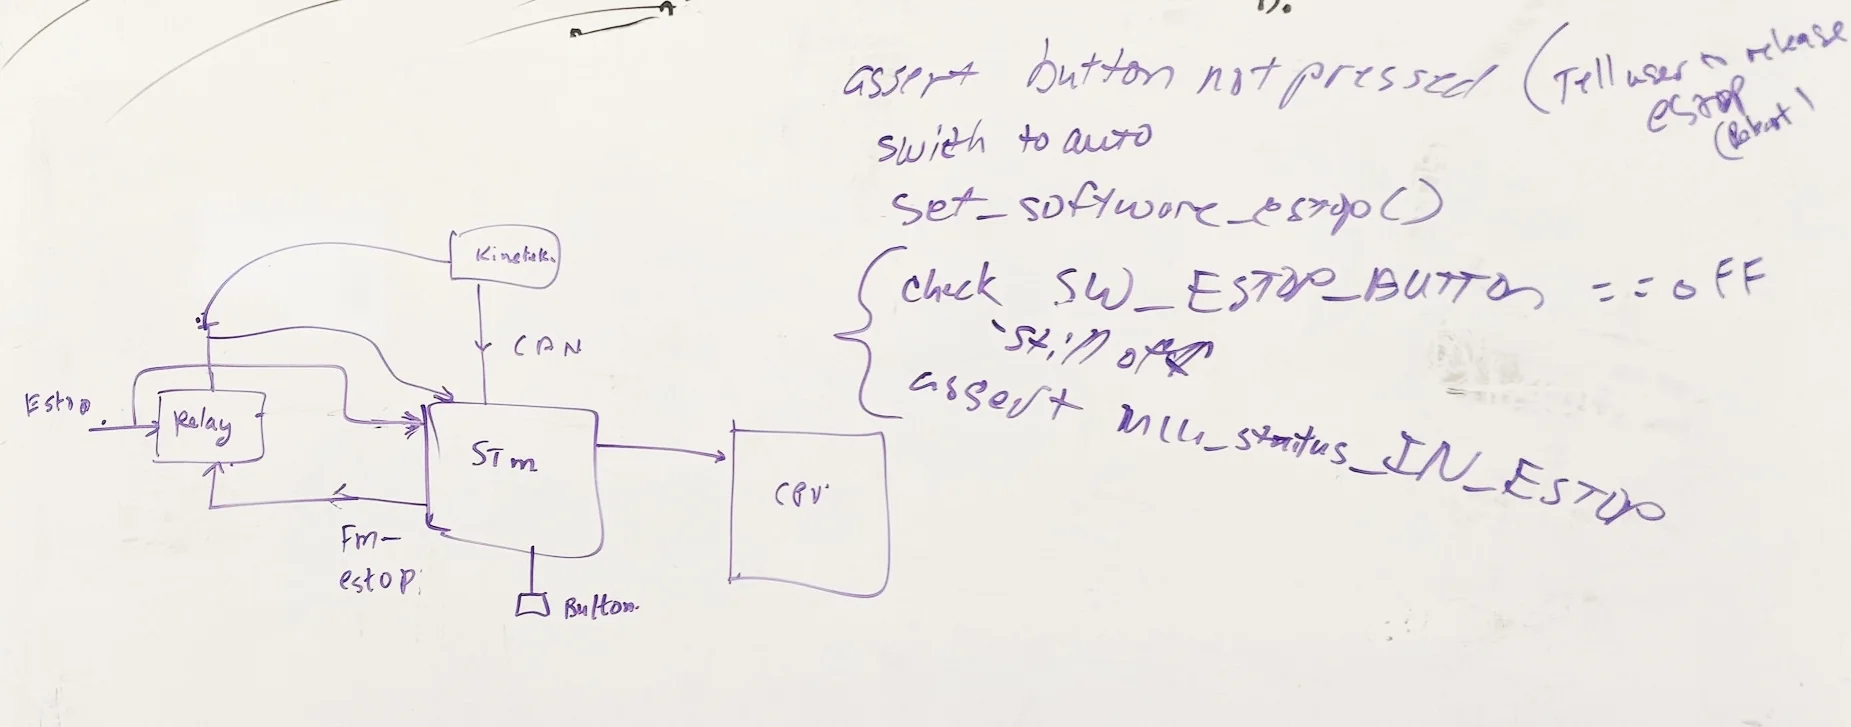 assert button not pressed (Tell user to release
estop
(Robart)
swith to auto
set_software_estop()
check SW_ESTOP_BUTTON == OFF
still off
assert mcu_status_IN_ESTOP
Kinetek.
CAN
Estop
Relay
STm
CPU
Fm-
estop
Button.